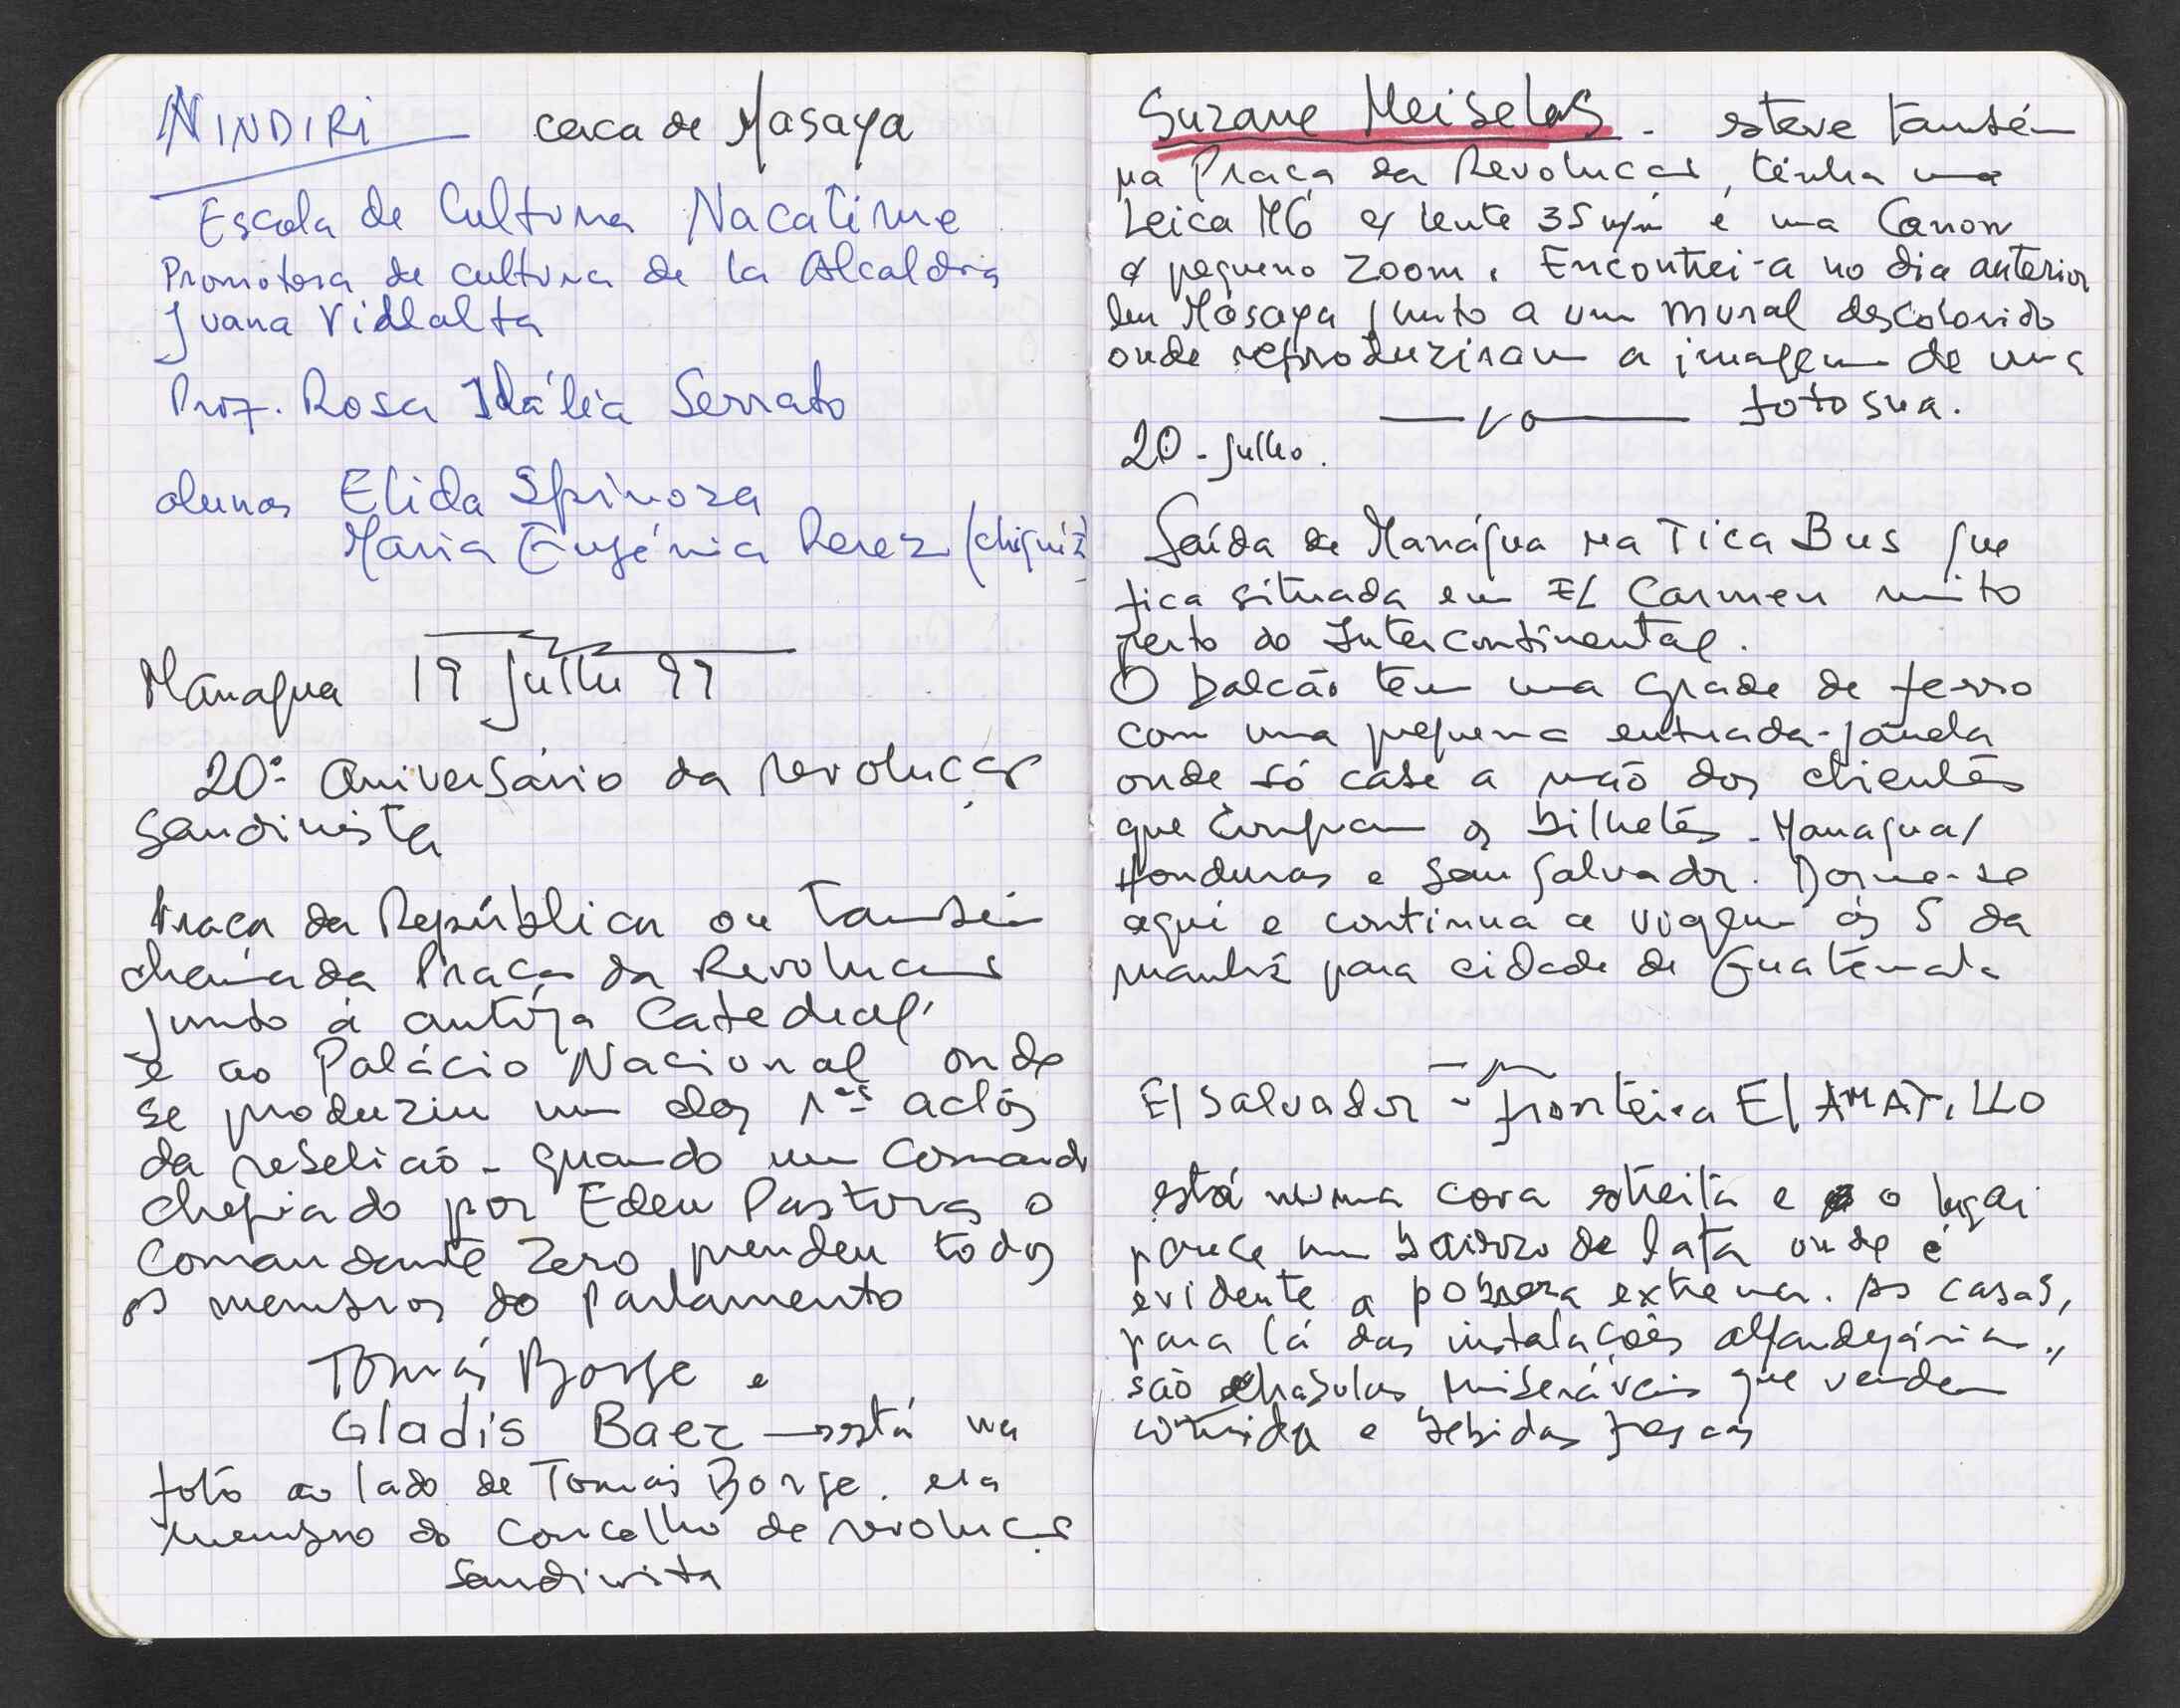 NINDIRI cerca de Masaya
Escola de Cultura Nacatime
Promotora de cultura de la Alcaldia
Juana Vidlalta
Prof. Rosa Idália Serrato
alunas Elida Spinoza
Maria Eugénia Perez
Managua 19 Julho 99
20º Aniversário da revolução
Sandinista
Praça da República ou também
chamada Praça da Revolução
junto à antiga Catedral
e ao Palácio Nacional onde
se produziu um dos 1ºs actos
da rebelião - quando um Comando
chefiado por Eden Pastora o
Comandante Zero, prendeu todos
os membros do parlamento
Tomás Borge e
Gladis Baez - está na
foto ao lado de Tomás Borge. era
membro do Concelho de revolução
Sandinista
Suzane Meiselas - esteve também
na Praça da Revolução, tinha uma
Leica M6 c/ lente 35 m/m e uma Canon
c/ pequeno zoom. Encontrei-a no dia anterior
em Masaya junto a um mural descolorido
onde reproduziram a imagem de uma
foto sua.
20 - Julho.
Saída de Manágua na Tica Bus que
fica situada em El Carmen muito
perto do Intercontinental.
O balcão tem uma grade de ferro
com uma pequena entrada-janela
onde só cabe a mão dos clientes
que compram os bilhetes - Managua/
Honduras e San Salvador. Dorme-se
aqui e continua a viagem às 5 da
manhã para cidade de Guatemala
El Salvador - fronteira El AMATILLO
está numa cova estreita e o lugar
parece um bairro de lata onde é
evidente a pobreza extrema. As casas,
para lá das instalações alfandegárias,
são chabolas miseráveis que vendem
comida e bebidas frescas